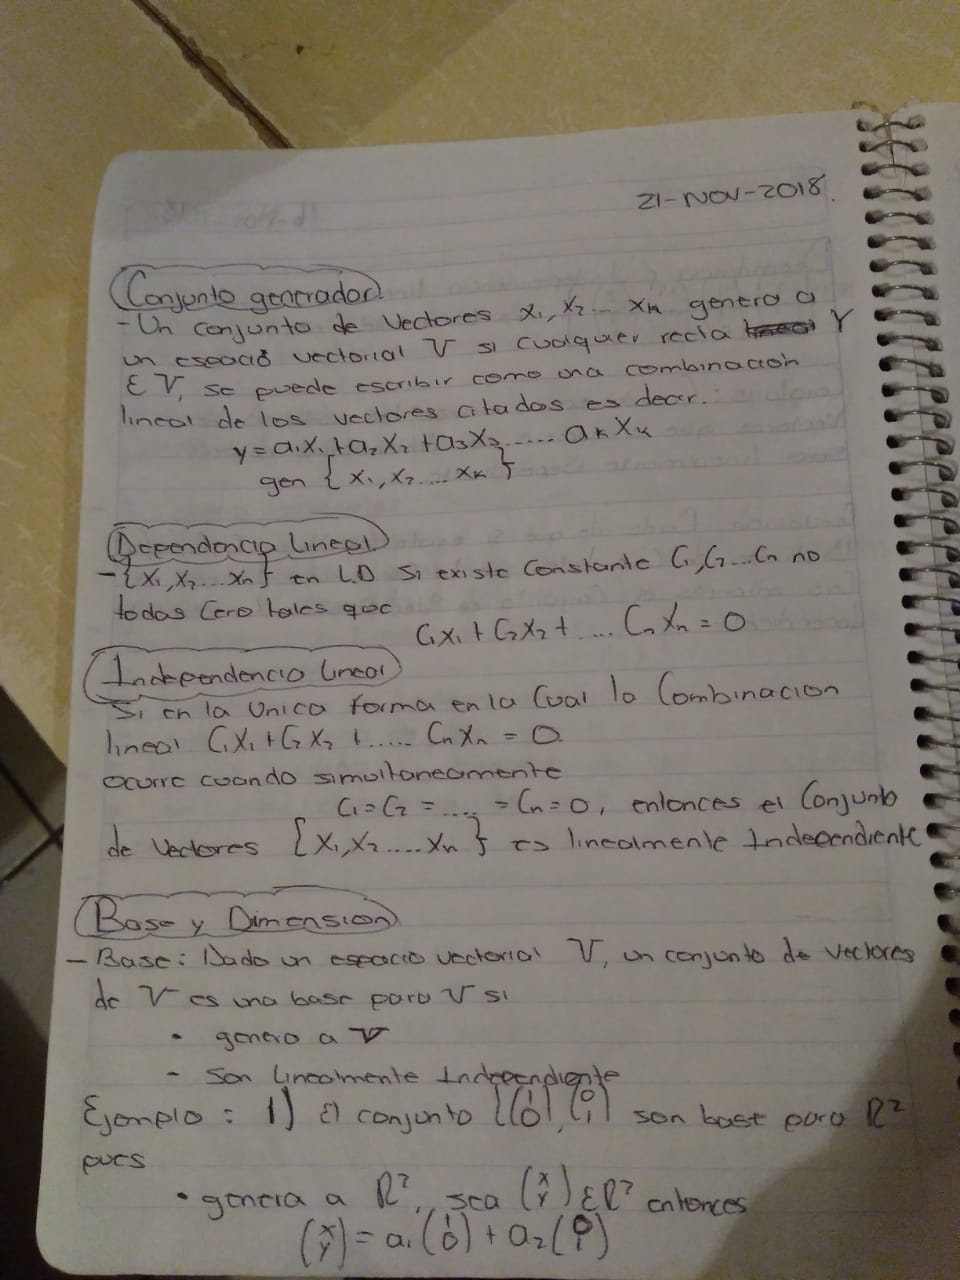 21-NOV-2018.
Conjunto generador
- Un conjunto de Vectores x₁, x₂... xₖ genera a
un espacio vectorial V si cualquier recta Y
ε V, se puede escribir como una combinación
lineal de los vectores citados es decir.
y = a₁x₁ + a₂x₂ + a₃x₃ ..... aₖxₖ
gen { x₁, x₂.... xₖ }
Dependencia Lineal
- {x₁, x₂ ... xₙ} en L.D si existe Constante C₁, C₂...Cₙ no
todas Cero tales que
C₁x₁ + C₂x₂ + ... Cₙxₙ = 0
Independencia Lineal
Si en la Unica forma en la Cual la Combinacion
lineal C₁x₁ + C₂x₂ + ..... Cₙxₙ = 0.
ocurre cuando simultaneamente
C₁ = C₂ = .... = Cₙ = 0, entonces el Conjunto
de Vectores {x₁, x₂ .... xₙ} es linealmente Independiente
Base y Dimension
- Base: Dado un espacio vectorial V, un conjunto de vectores
de V es una base para V si
• genera a V
- Son Linealmente Independiente
Ejemplo : 1) El conjunto {(1 0), (0 1) son base para R²
pues
• genera a R², sea (x y) ε R² entonces
(x y) = a₁ (1 0) + a₂ (0 1)